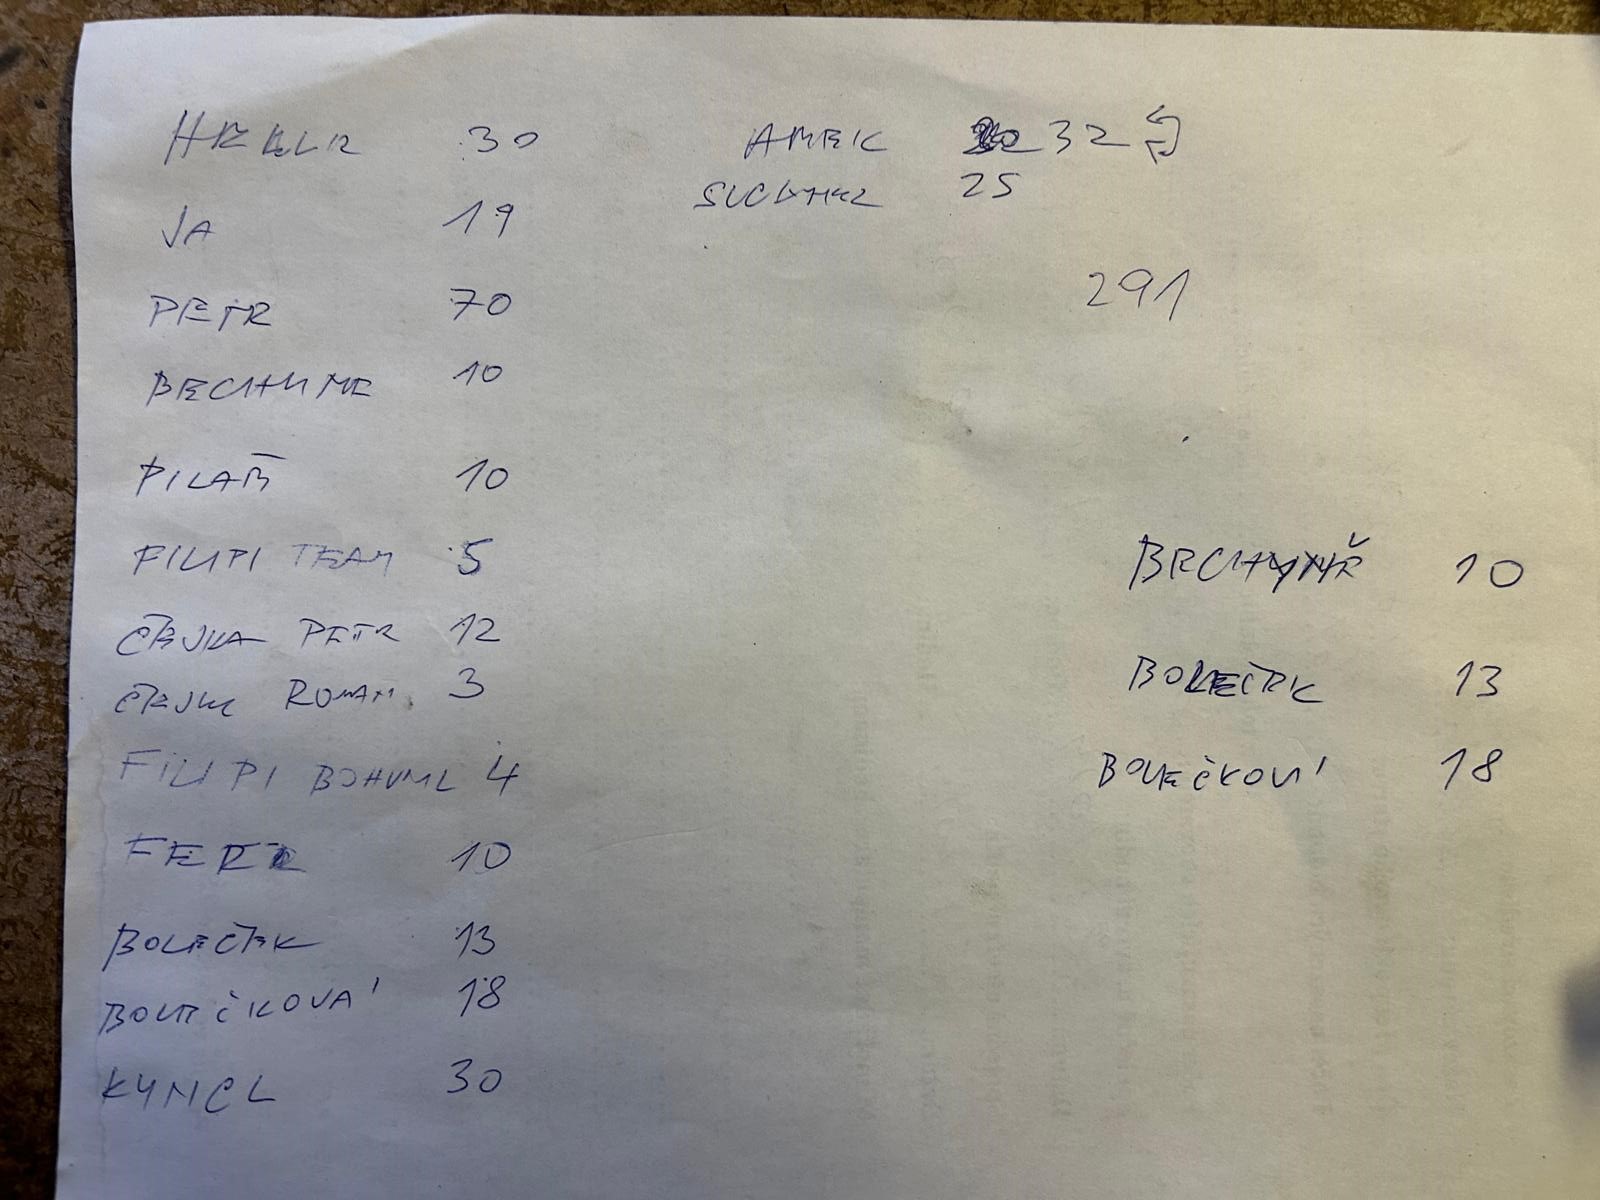 30
JA 19
PETR 70
BECHYNE 10
PILAŘ 10
FILIPI TEAM 5
ČEJKA PETR 12
ČEJKA ROMAN 3
FILIPI BOHUMIL 4
10
BOLEČEK 13
BOLEČKOVÁ 18
KYNCL 30
AMEK 32
25
291
BECHYNĚ 10
BOLEČEK 13
BOLEČKOVÁ 18